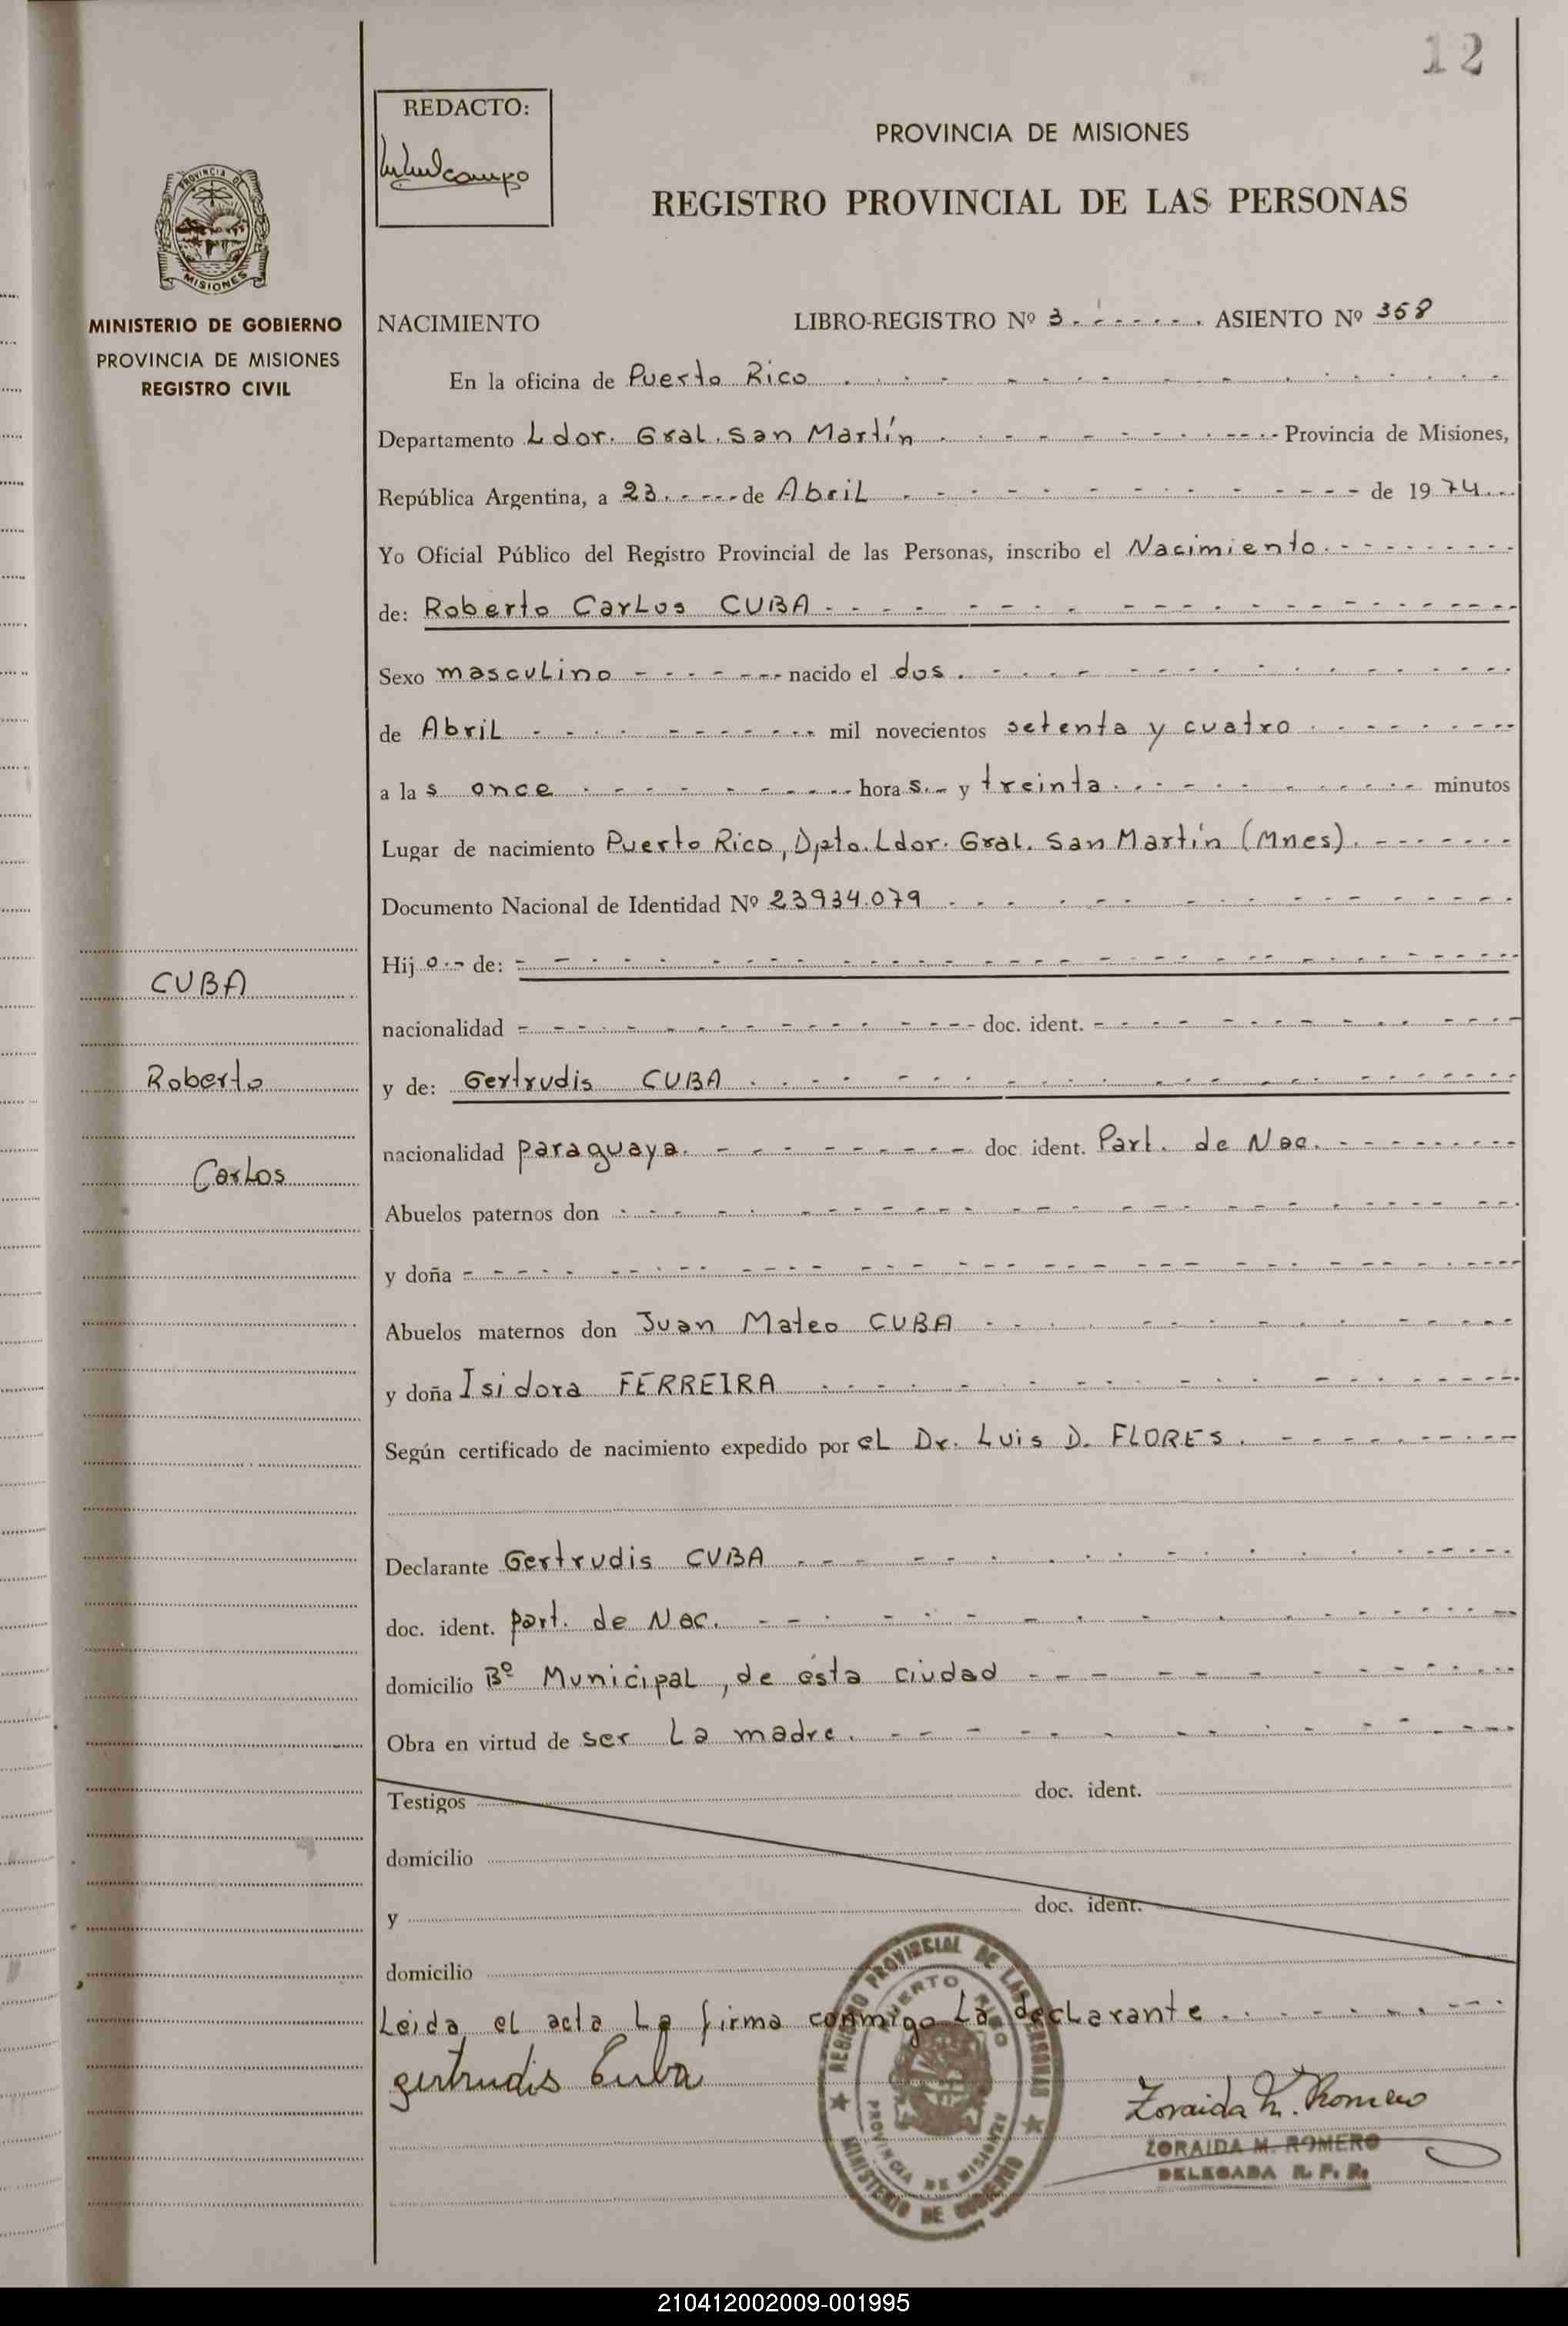 12
REDACTO:
PROVINCIA DE MISIONES
REGISTRO PROVINCIAL DE LAS PERSONAS
PROVINCIA DE
MISIONES
MINISTERIO DE GOBIERNO
PROVINCIA DE MISIONES
REGISTRO CIVIL
NACIMIENTO LIBRO-REGISTRO Nº 3 ASIENTO Nº 368
En la oficina de Puerto Rico
Departamento Ldor. Gral. San Martín Provincia de Misiones,
República Argentina, a 23 de Abril de 1974
Yo Oficial Público del Registro Provincial de las Personas, inscribo el Nacimiento
de: Roberto Carlos CUBA
Sexo masculino nacido el dos
de Abril mil novecientos setenta y cuatro
a las once horas y treinta minutos
Lugar de nacimiento Puerto Rico, Dpto. Ldor. Gral. San Martín (Mnes).
Documento Nacional de Identidad Nº 23934.079
Hijo de:
nacionalidad doc. ident.
y de: Gertrudis CUBA
nacionalidad paraguaya doc ident. Part. de Nac.
Abuelos paternos don
y doña
Abuelos maternos don Juan Mateo CUBA
y doña Isidora FERREIRA
Según certificado de nacimiento expedido por el Dr. Luis D. FLORES
Declarante Gertrudis CUBA
doc. ident. part. de Nac.
domicilio Bº Municipal, de ésta ciudad
Obra en virtud de ser la madre
Testigos doc. ident.
domicilio
y doc. ident.
domicilio
Leida el acta la firma conmigo la declarante
gertrudis Cuba
Zoraida M. Romero
ZORAIDA M. ROMERO
DELEGADA R. P. P.
REGISTRO PROVINCIAL DE LAS PERSONAS
PUERTO RICO
PROVINCIA DE MISIONES
MINISTERIO DE GOBIERNO
CUBA
Roberto
Carlos
210412002009-001995